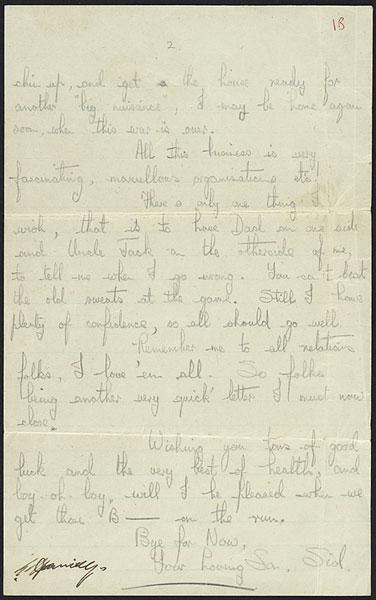 18
2
chin up, and get a the house ready for
another "big nuisance", I may be home again
soon, when this war is over.
All this business is very
fascinating, marvellous organisations etc!
There is only one thing I
wish, that is to have Dad on one side
and Uncle Jack on the otherside of me,
to tell me when I go wrong. You can't beat
the old sweats at the game. Still I have
plenty of confidence, so all should go well.
Remember me to all relations
folks, I love 'em all. So folks
being another very "quick" letter I must now
close.
Wishing you tons of good
luck and the very best of health, and
boy-oh-boy, will I be pleased when we
get those B—— on the run.
Bye for Now,
Your Loving Son, Sid.